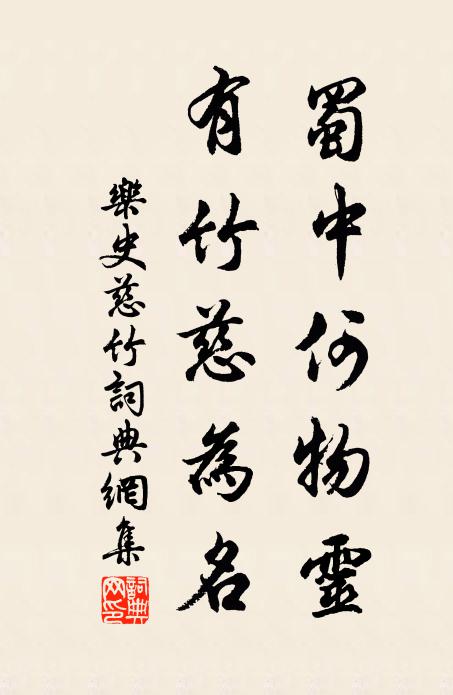 蜀中何物靈
有竹慈為名
樂史慈竹詞典網集
詞典
网印